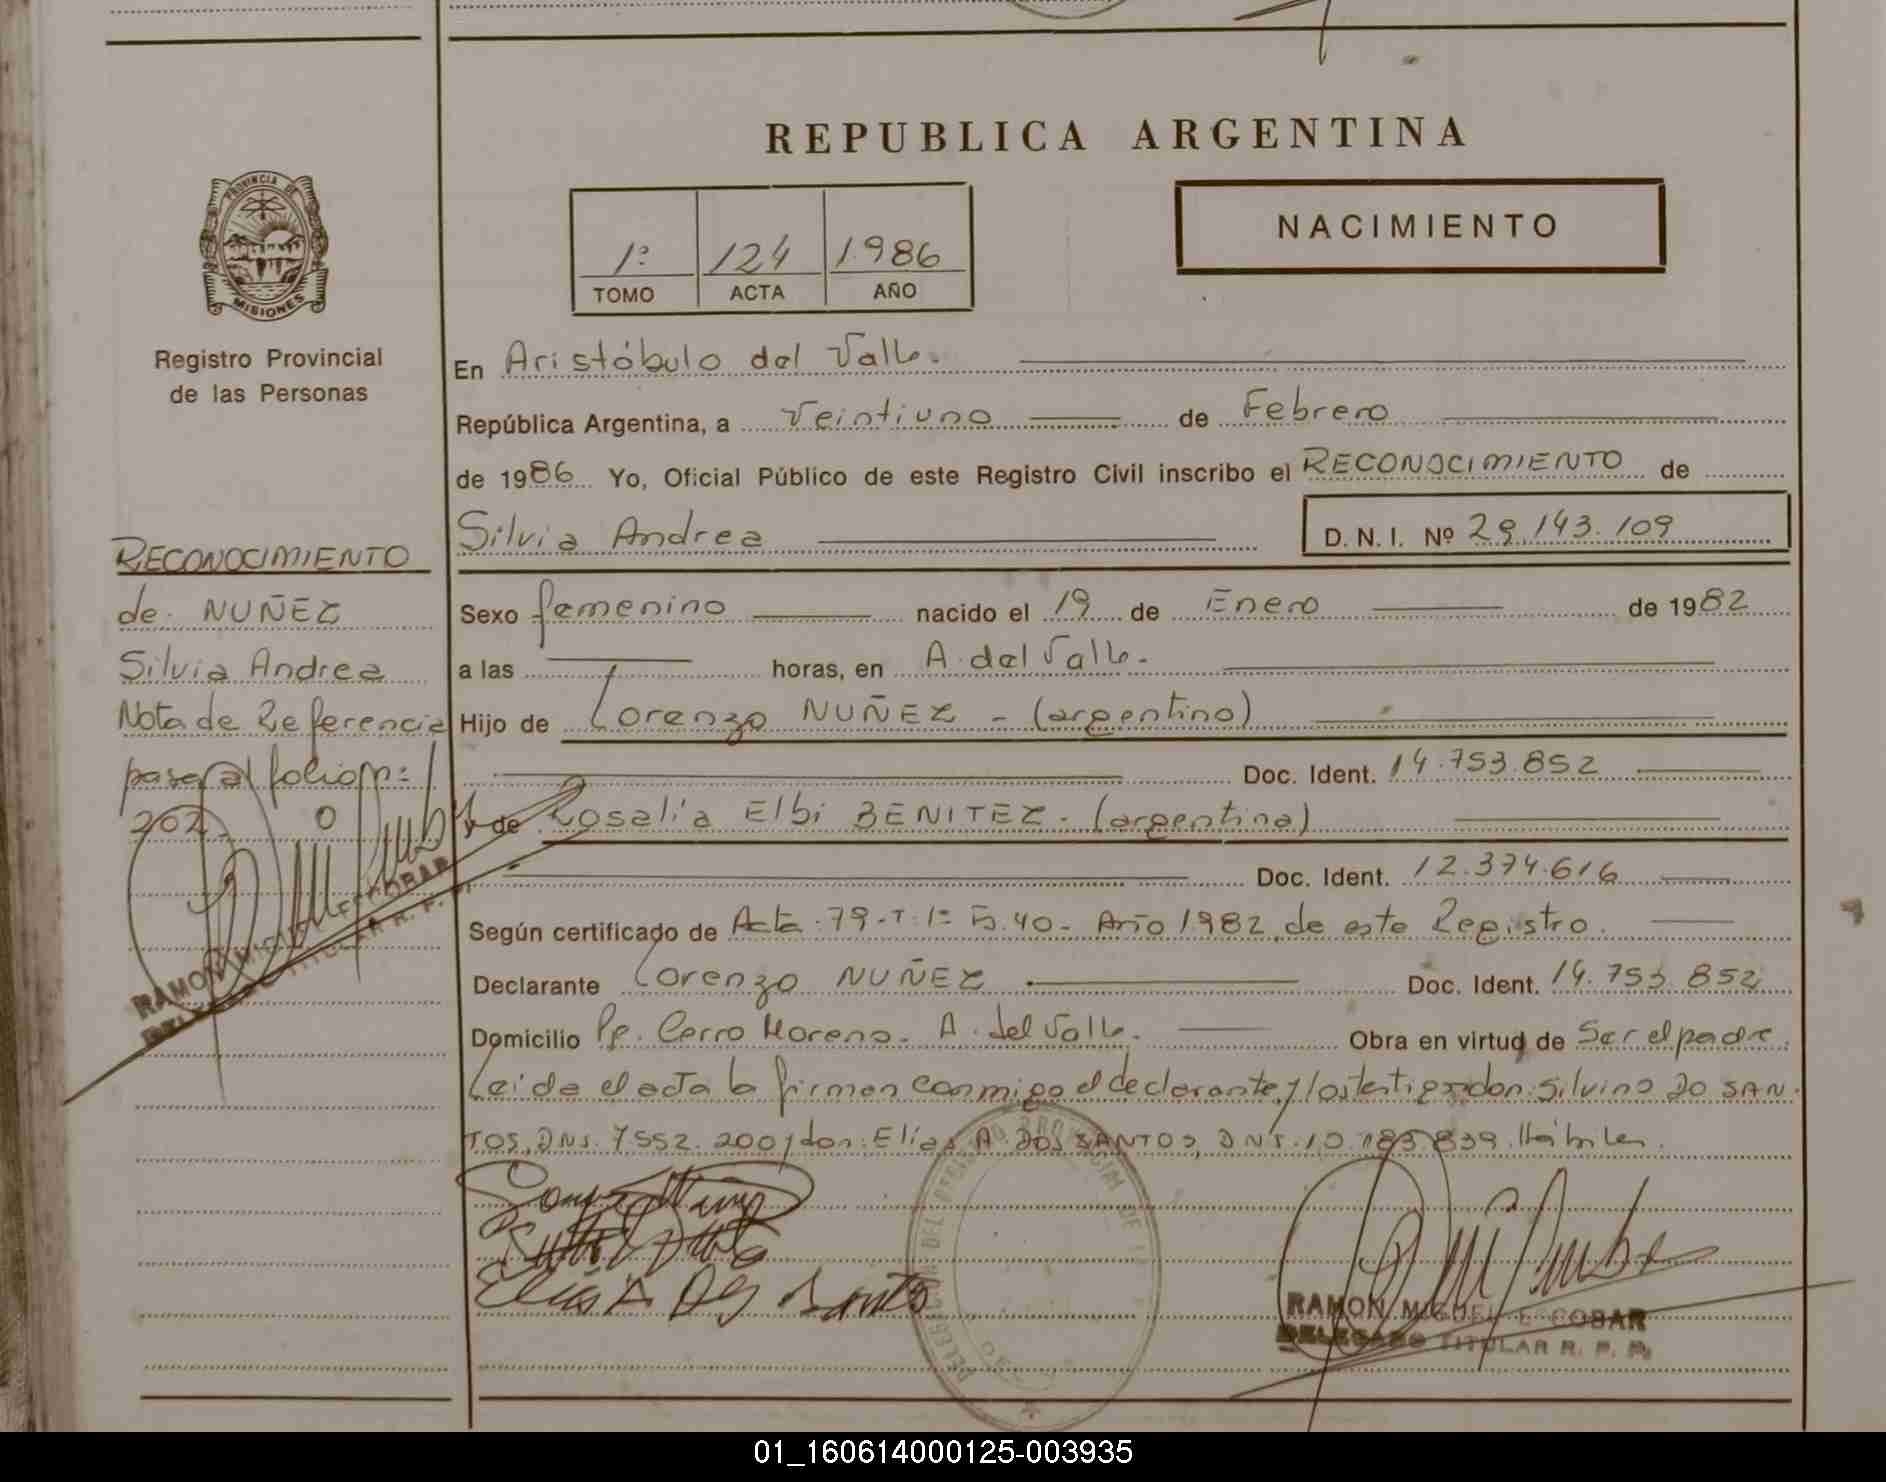 REPUBLICA ARGENTINA
PROVINCIA DE
MISIONES
Registro Provincial
de las Personas
1º 124 1986
TOMO ACTA AÑO
NACIMIENTO
En Aristóbulo del Valle.
República Argentina, a Veintiuno de Febrero
de 1986 Yo, Oficial Público de este Registro Civil inscribo el RECONOCIMIENTO de
Silvia Andrea D. N. I. Nº 29.143.109
RECONOCIMIENTO
de NUÑEZ
Silvia Andrea
Nota de Referencia
pasa al folio nº:
202.
RAMON MIGUEL ESCOBAR
DELEGADO TITULAR R. P. P.
Sexo femenino nacido el 19 de Enero de 1982
a las horas, en A. del Valle.
Hijo de Lorenzo NUÑEZ - (argentino)
Doc. Ident. 14.753.852
y de Rosalía Elbi BENITEZ - (argentina)
Doc. Ident. 12.374.616
Según certificado de Acta 79-T:1º F.40- Año 1982 de este Registro.
Declarante Lorenzo NUÑEZ Doc. Ident. 14.753.852
Domicilio Pje. Cerro Moreno. A. del Valle. Obra en virtud de Ser el padre.
Leída el acta la firman conmigo el declarante y los testigos don: Silvino DO SAN-
TOS, DNI. 7.552.200 y don: Elías A. DOS SANTOS, DNI. 10.183.839. Hábiles.
Elias A Dos Santos
RAMON MIGUEL ESCOBAR
DELEGADO TITULAR R. P. P.
01_160614000125-003935